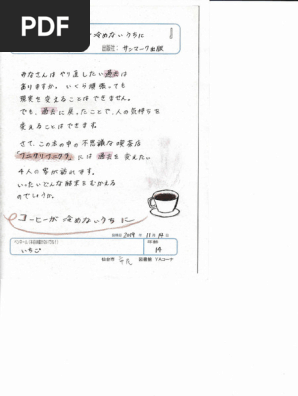 PDF
冷めないうちに
出版社: サンマーク出版
みなさんは やり直したい過去は
ありますか。いくら頑張っても
現実を変えることはできません。
でも、過去に戻ったことで、人の気持ちを
変えることはできます。
さて、この本の中の不思議な喫茶店
「フニクリフニクラ」には 過去を変えたい
4人の客が訪れます。
いったいどんな結末をむかえる
のでしょうか。
コーヒーが 冷めないうちに
2019 年 11 月 14 日
いちご
14
仙台市
図書館 YAコーナー